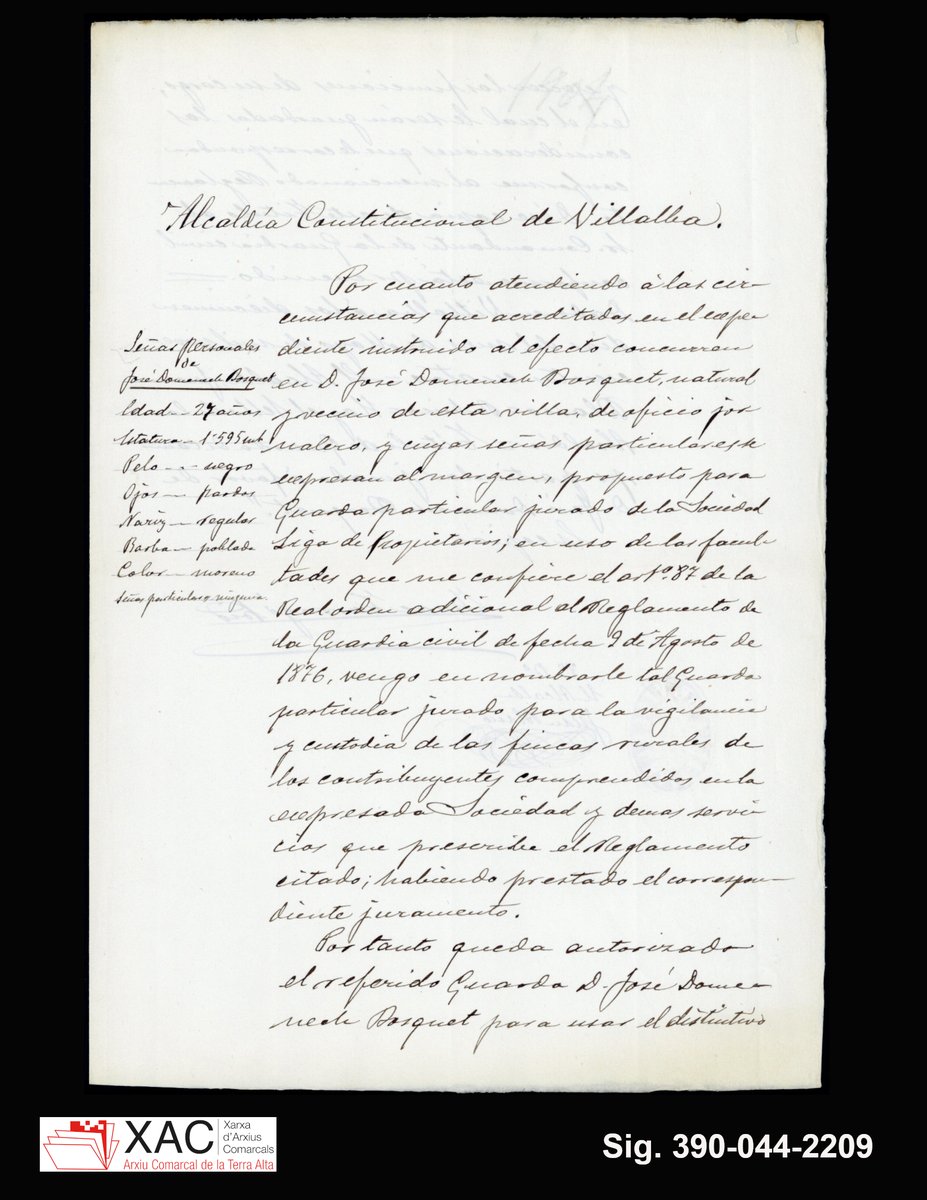 Alcaldía Constitucional de Villalba.
Por cuanto atendiendo á las cir-
cunstancias que acreditadas en el expe-
diente instruido al efecto concurren
en D. José Domenech Bosquet, natural
y vecino de esta villa, de oficio jor
nalero, y cuyas señas particulares se
expresan al margen, propuesto para
Guarda particular jurado de la Sociedad
Liga de Propietarios; en uso de las facul-
tades que me confiere el artº. 87 de la
Real orden adicional al Reglamento de
la Guardia civil de fecha 9 de Agosto de
1876, vengo en nombrarle tal Guarda
particular jurado para la vigilancia
y custodia de las fincas rurales de
los contribuyentes comprendidos en la
expresada Sociedad y demas servi-
cios que prescribe el Reglamento
citado; habiendo prestado el correspon-
diente juramento.
Por tanto queda autorizado
el referido Guarda D. José Dome-
nech Bosquet para usar el distintivo
Señas personales
de
José Domenech Bosquet
Edad - 27 años
Estatura - 1'595 mt
Pelo - - negro
Ojos - pardos
Nariz - regular
Barba - poblada
Color - moreno
Señas particulares ninguna.
XAC
Xarxa
d'Arxius
Comarcals
Arxiu Comarcal de la Terra Alta
Sig. 390-044-2209